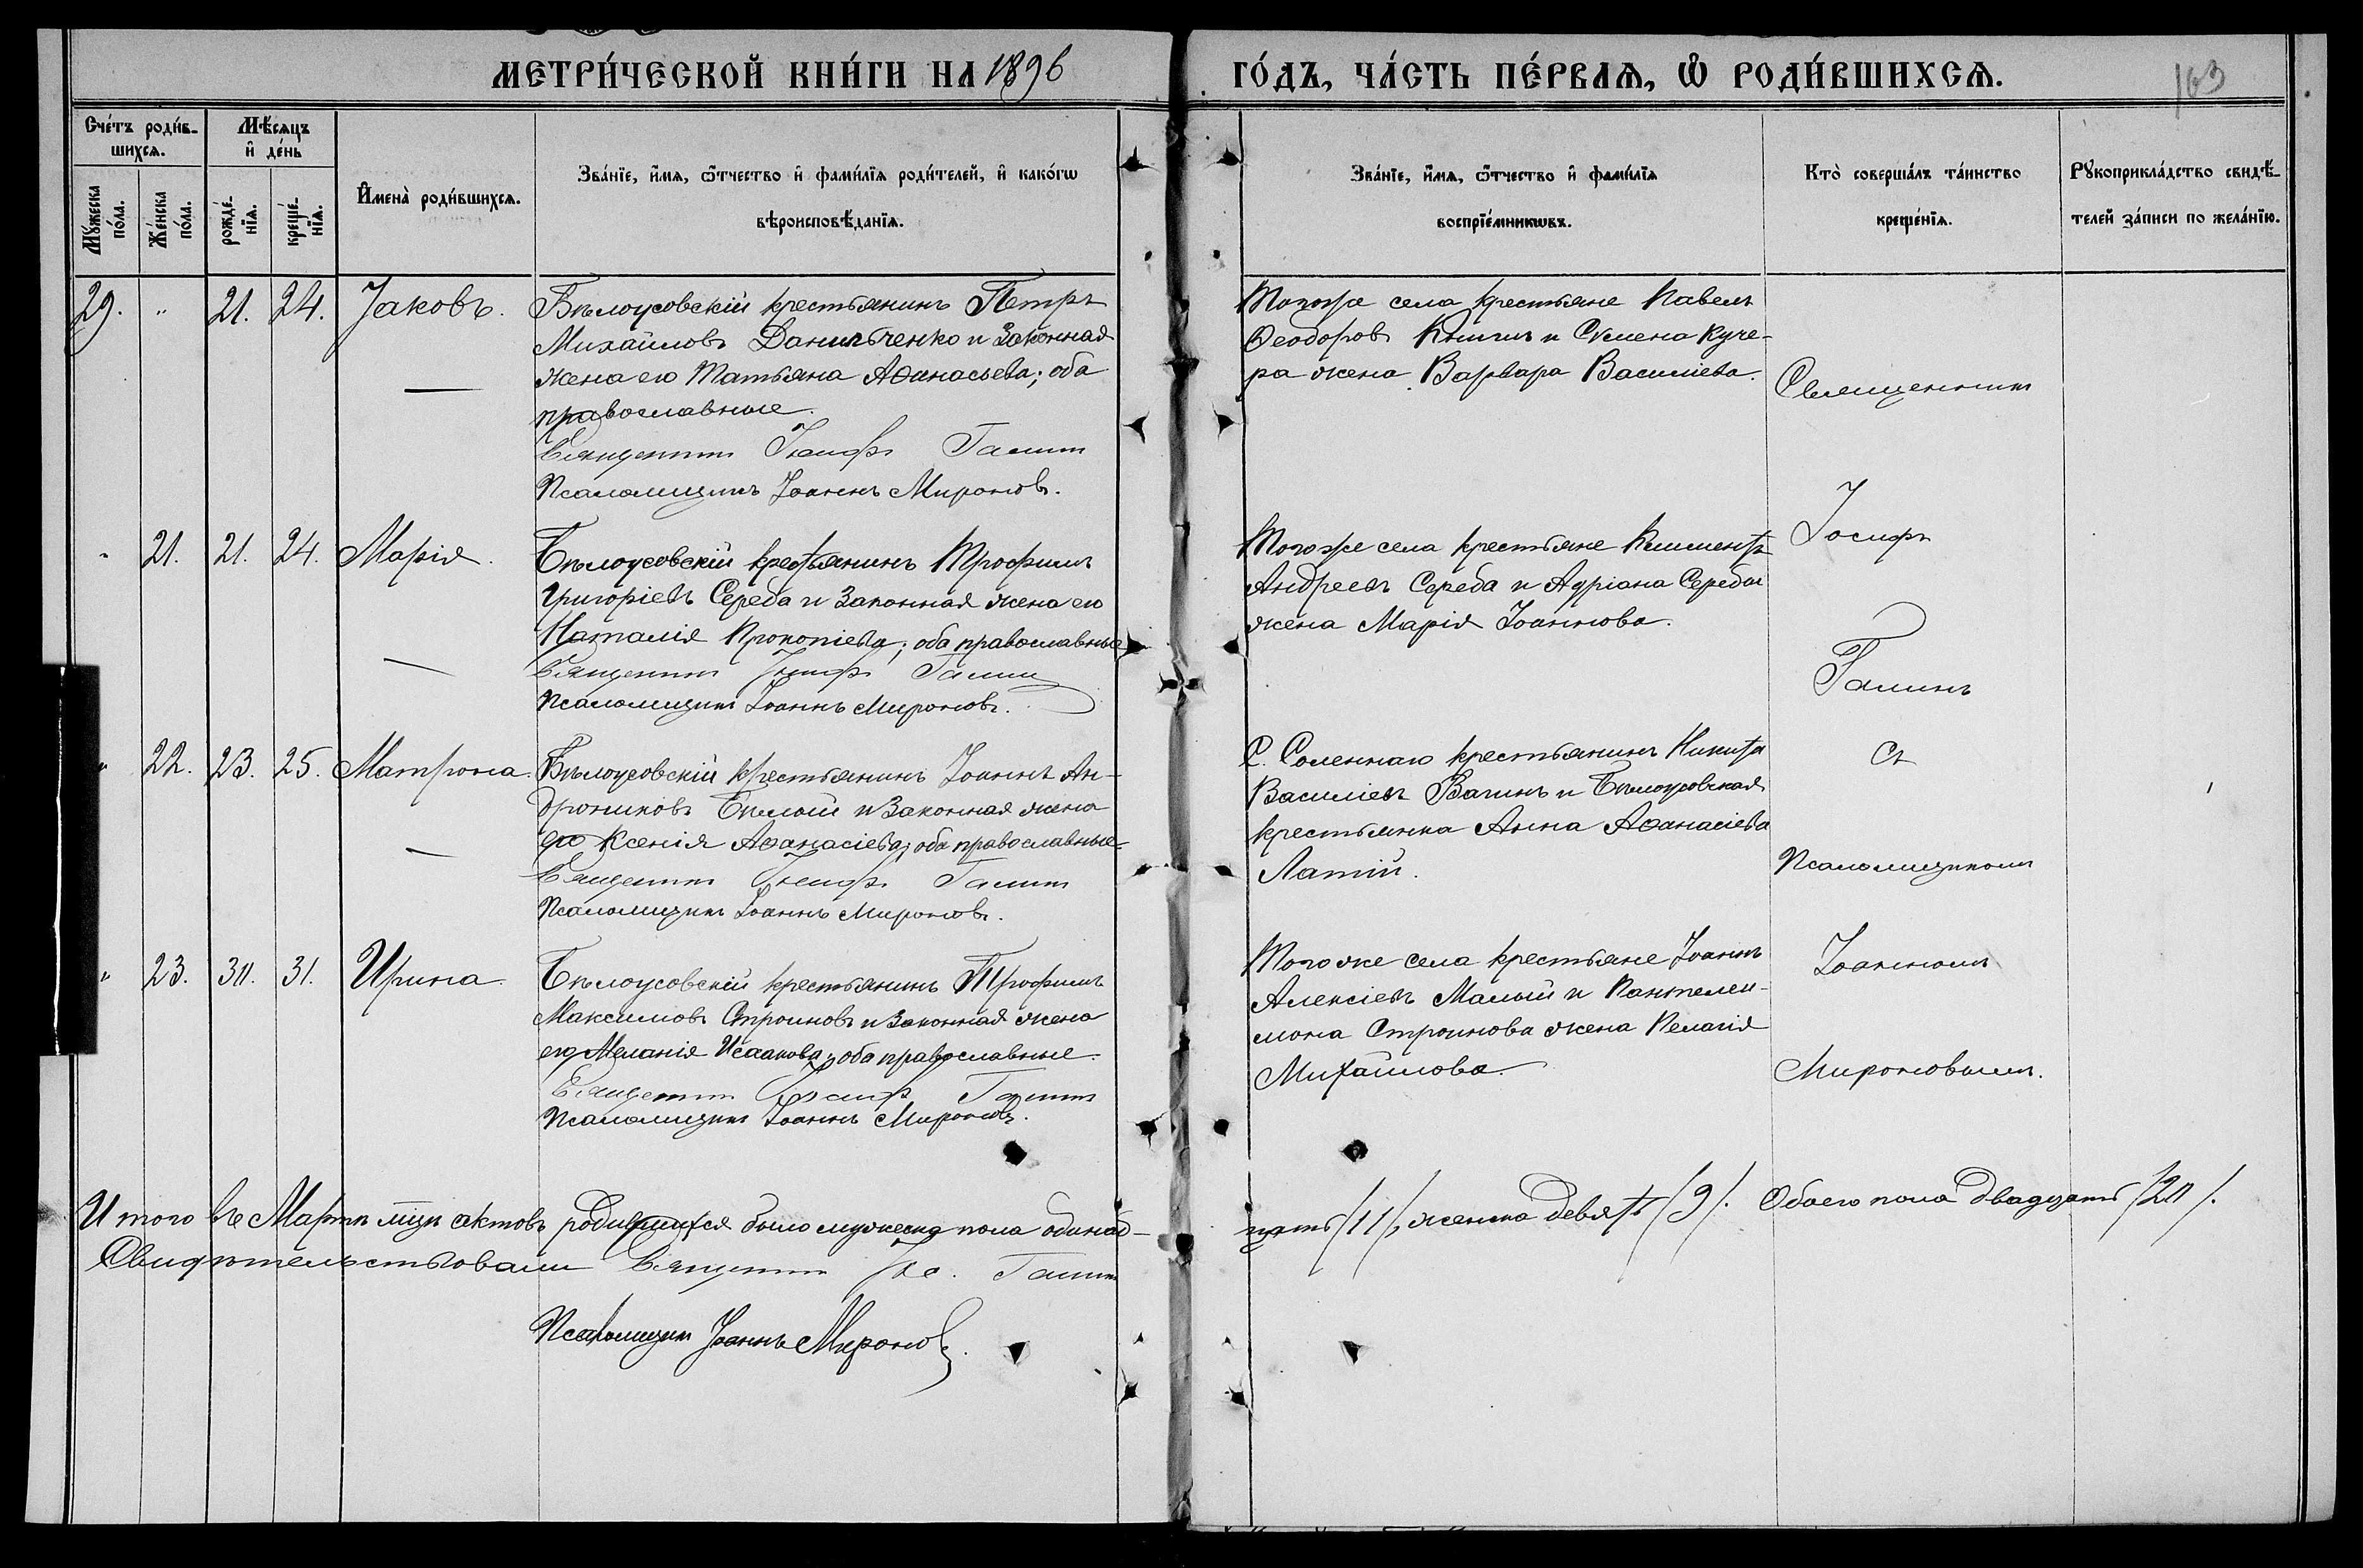 МЕТРИ́ЧЕСКОЙ КНИ́ГИ НА 1896
ГО́ДЪ, ЧА́СТЬ ПЕ́РВАѦ, Ѡ РОДИ́ВШИХСѦ.
163
Сче́тъ роди́в-
шихсѧ.
Мѣ́сѧцъ
и҆ де́нь
Мꙋ́жеска
по́ла.
Же́нска
по́ла.
рожде́-
нїѧ.
креще́-
нїѧ.
И҆мена̀ роди́вшихсѧ.
Зва́нїе, и҆́мѧ, ѻ҆́тчество и҆ фами́лїѧ роди́телей, и҆ како́гѡ
вѣроисповѣ́данїѧ.
Зва́нїе, и҆́мѧ, ѻ҆́тчество и҆ фами́лїѧ
воспрїе́мникѡвъ.
Кто̀ соверша́лъ та́инство
креще́нїѧ.
Рꙋкоприкла́дство свидѣ́-
телей за́писи по жела́нїю.
29. " 21. 24. Іаковъ.
Бѣлоусовскій крестьянинъ Петръ
Михайловъ Данильченко и законная
жена его Татьяна Аѳанасьева; оба
православные.
Священникъ Іосифъ Галинъ
Псаломщикъ Іоаннъ Мироновъ.
Тогоже села крестьяне Павелъ
Ѳеодоровъ и Семена Куче-
ра жена Варвара Василіева.
Священникъ
" 21. 21. 24. Марія.
Бѣлоусовскій крестьянинъ Трофимъ
Григоріевъ Середа и законная жена его
Наталія Прокопіева; оба православные
Священникъ Іосифъ Галинъ
Псаломщикъ Іоаннъ Мироновъ.
Тогоже села крестьяне Климентъ
Андреевъ Середа и Адріана Середы
жена Марія Іоаннова.
Іосифъ
Галинъ
" 22. 23. 25. Матрона.
Бѣлоусовскій крестьянинъ Іоаннъ Ан-
дрониковъ Бѣлый и законная жена
его Ксенія Аѳанасіева; оба православные.
Священникъ Іосифъ Галинъ
Псаломщикъ Іоаннъ Мироновъ.
С. Соленнаго крестьянинъ Никита
Василіевъ и Бѣлоусовская
крестьянка Анна Аѳанасіева
Латій.
Съ
Псаломщикомъ
" 23. 30. 31. Ирина.
Бѣлоусовскій крестьянинъ Трофимъ
Максимовъ Строиновъ и законная жена
его Меланія Исаакова; оба православные.
Священникъ Іосифъ Галинъ
Псаломщикъ Іоаннъ Мироновъ.
Тогоже села крестьяне Іоаннъ
Алексіевъ Малый и Пантелеи-
мона Строинова жена Пелагія
Михайлова.
Іоанномъ
Мироновымъ.
Итого въ Мартѣ мцѣ актовъ родившихся было мужеска пола одинад-
цать /11/, женска девять /9/. Обоего пола двадцать /20/.
Свидѣтельствовали Священникъ Іос. Галинъ
Псаломщикъ Іоаннъ Мироновъ.